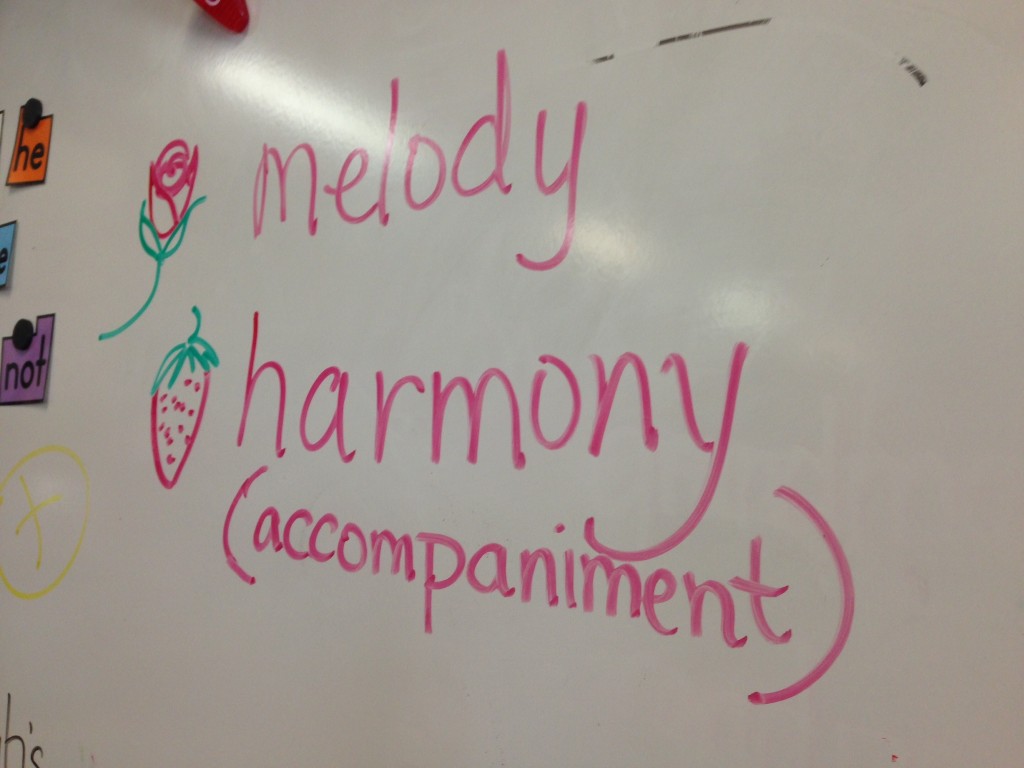 he
melody
not
harmony
(accompaniment)